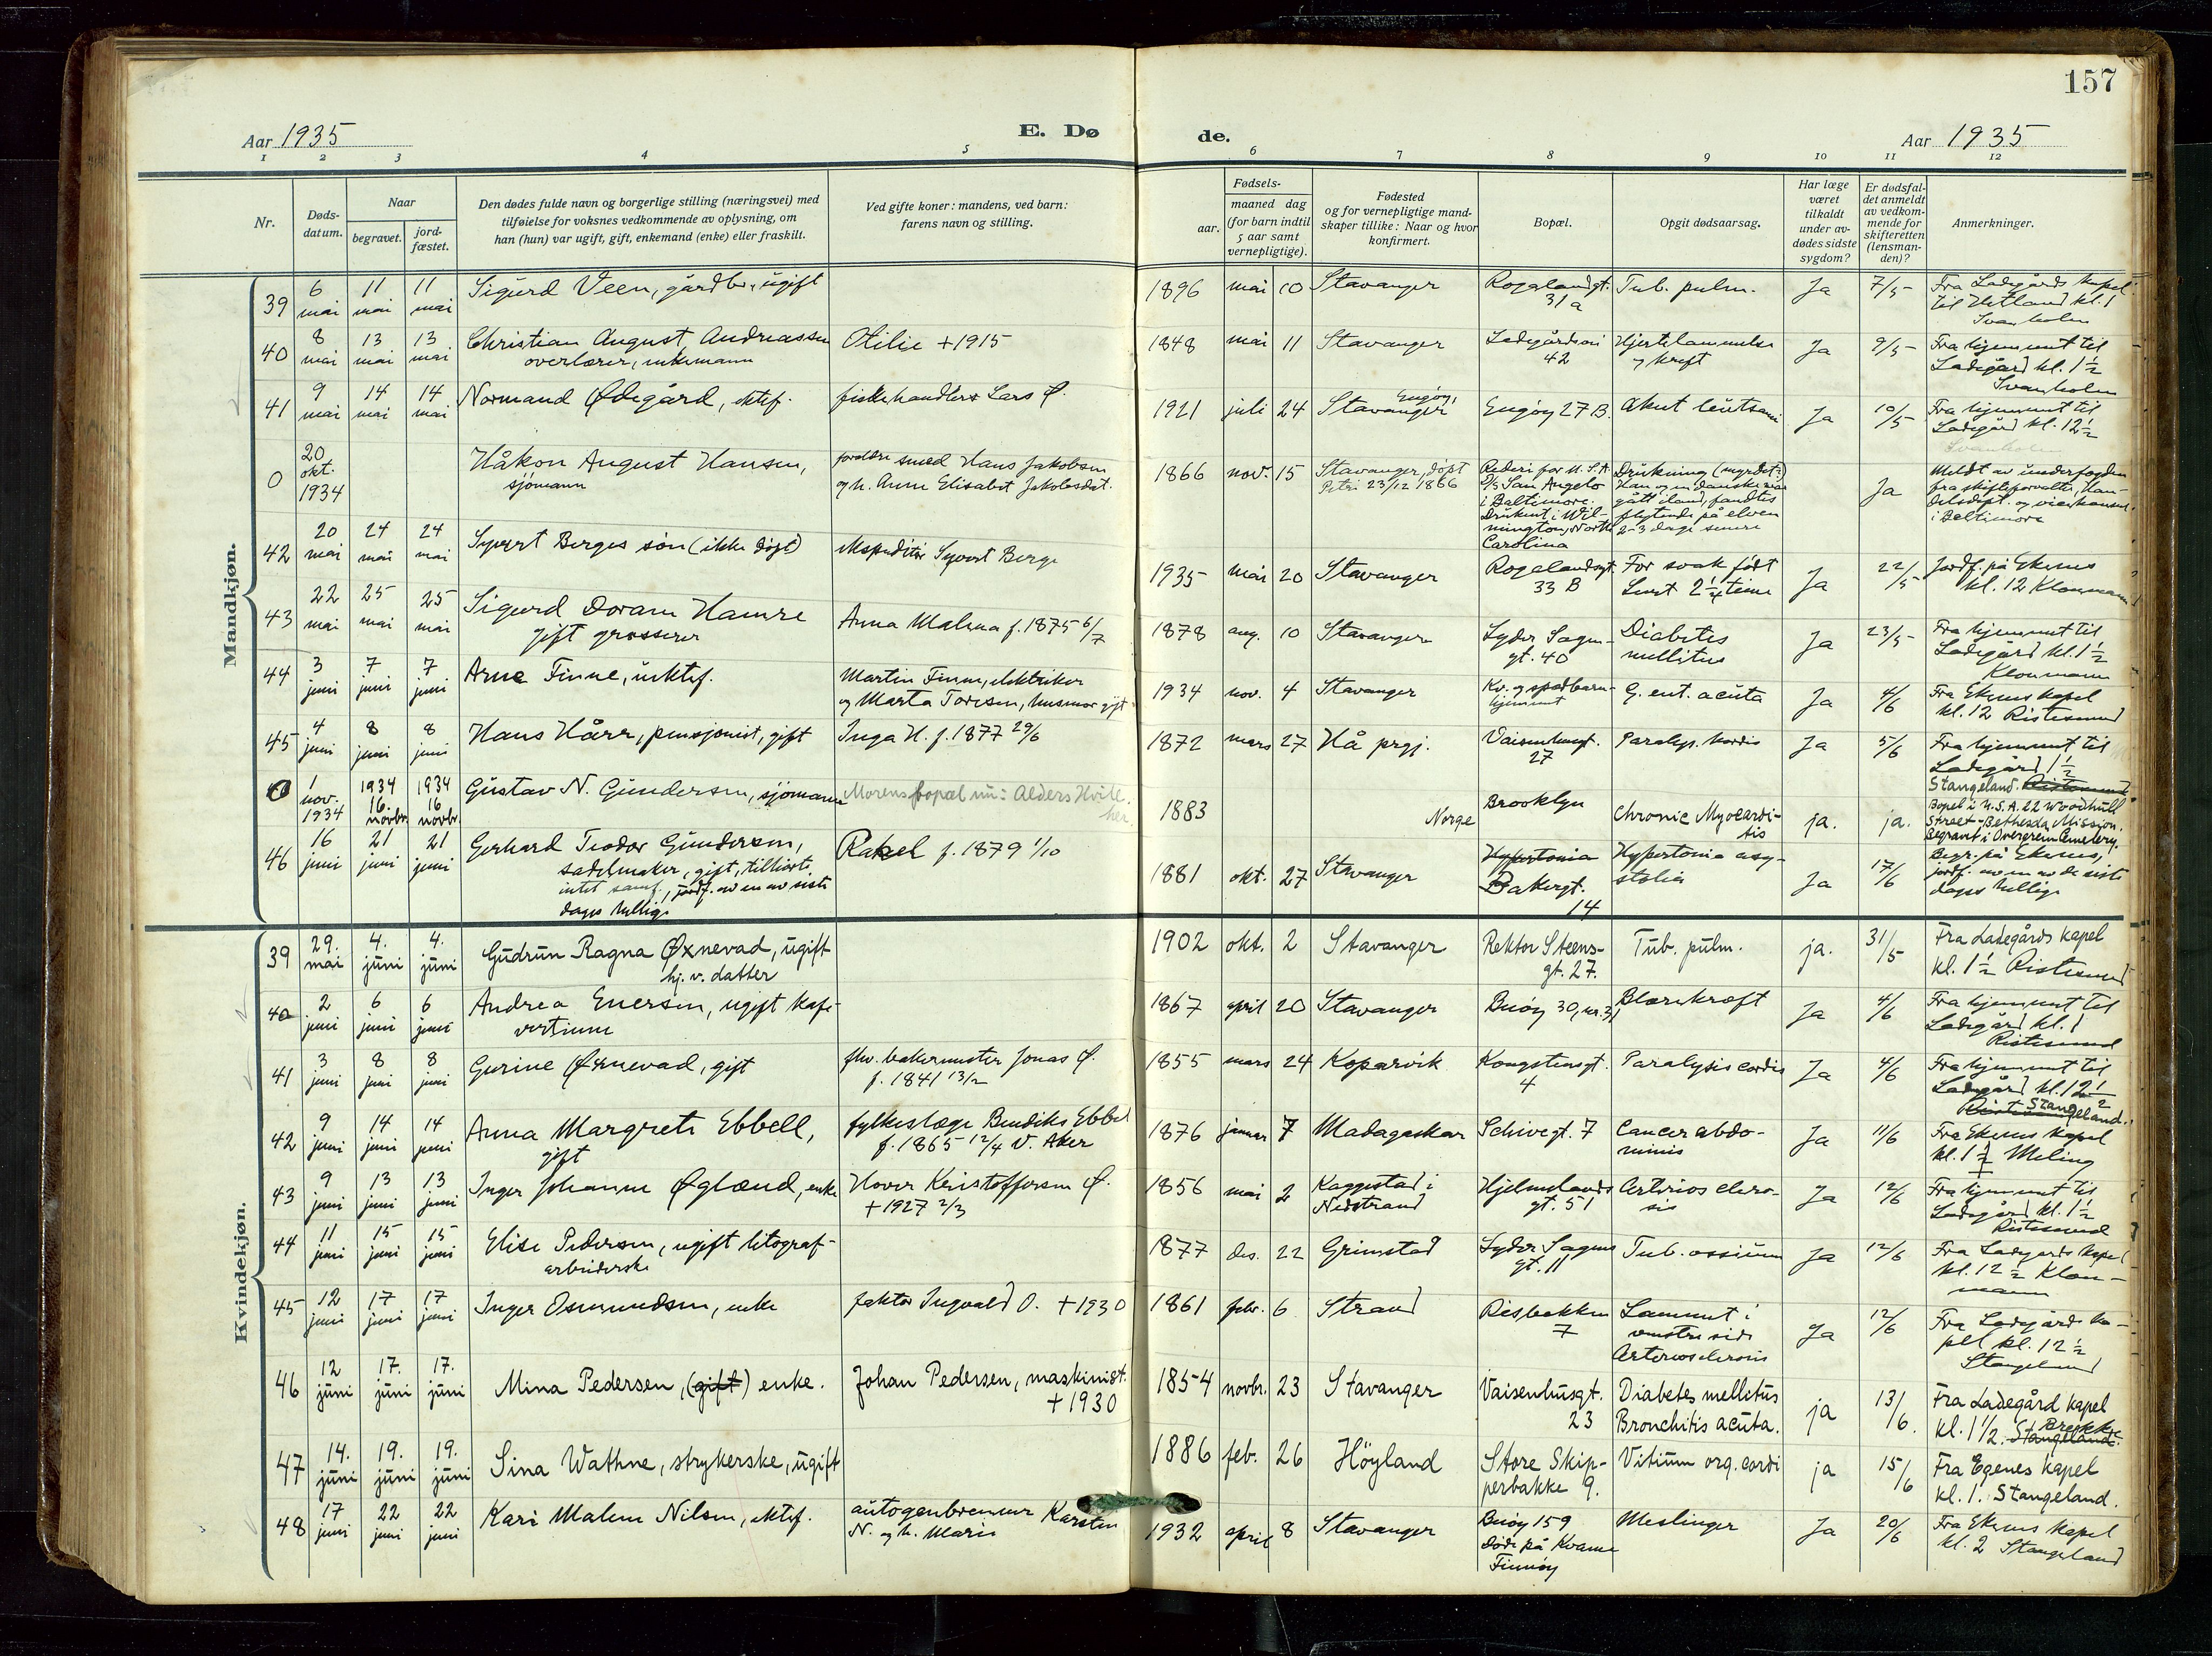 157
Aar 1935
E. Dø
de.
Aar 1935
1 2 3 4 5 6 7 8 9 10 11 12
Nr.
Døds-
datum.
Naar
begravet.
jord-
fæstet.
Den dødes fulde navn og borgerlige stilling (næringsvei) med
tilføielse for voksnes vedkommende av oplysning, om
han (hun) var ugift, gift, enkemand (enke) eller fraskilt.
Ved gifte koner: mandens, ved barn:
farens navn og stilling.
Fødsels-
aar.
maaned dag
(for barn indtil
5 aar samt
vernepligtige).
Fødested
og for vernepligtige mand-
skaper tillike: Naar og hvor
konfirmert.
Bopæl.
Opgit dødsaarsag.
Har læge
været
tilkaldt
under av-
dødes sidste
sygdom?
Er dødsfal-
det anmeldt
av vedkom-
mende for
skifteretten
(lensman-
den)?
Anmerkninger.
Mandkjøn.
39 6 mai 11 mai 11 mai Sigurd Veen, gårdbr., ugift 1896 mai 10 Stavanger Rogalandgt. 31a Tub. pulm. Ja 7/5 Fra Ladegårds kapel
til Hetland kl. 1
Svanholm
40 8 mai 13 mai 13 mai Christian August Andreassen
overlærer, enkemann Otilie +1915 1848 mai 11 Stavanger Ladegårdsvei 42 Hjertelammelse
og kreft Ja 9/5 Fra hjemmet til
Ladegård kl. 1 1/2
Svanholm
41 9 mai 14 mai 14 mai Normand Ødegård, ektef. fiskehandler Lars Ø. 1921 juli 24 Engøy, Stavanger Engøy 27 B. Akut Ja 10/5 Fra hjemmet til
Ladegård kl. 12 1/2
Svanholm
0 20 okt. 1934 Håkon August Hansen,
sjömann foreldre smed Hans Jakobsen
og h. Anne Elisabet Jakobsdat. 1866 nov. 15 Stavanger, döpt
Petri 23/12 1866 Rederi for U.S.A.
D/S San Angelo
i Baltimore.
Druknet i Wil-
mington, North
Carolina Drukning
Han og en danske var
gått iland, fandtes
flytende på elven
2-3 dage senere Ja Meldt av underfogden
fra skifteforvalter, Han-
delsdept. og visekonsul
i Baltimore
42 20 mai 24 mai 24 mai Syvert Berges sön (ikke döpt) ekspeditör Syvert Berge 1935 mai 20 Stavanger Rogalandsgt. 33 B For svak född
Levet 2 1/4 time Ja 22/5 Jordf. på Ekenes
kl. 12 Klonmann
43 22 mai 25 mai 25 mai Sigurd Doram Hamre
gift grosserer Anna Malena f. 1875 6/7 1878 aug. 10 Stavanger Lyder Sagens
gt. 40 Diabetes
mellitus Ja 23/5 Fra hjemmet til
Ladegård kl. 1 1/2
Klonmann
44 3 juni 7 juni 7 juni Arne Finne, ektef. Martin Finne, elektriker
og Marta Toresen, husmor gift 1934 nov. 4 Stavanger Kv. og spedbarn-
hjemmet G. ent. acuta Ja 4/6 Fra Ekenes kapel
kl. 12 Ristesund
45 4 juni 8 juni 8 juni Hans Hårr, pensjonist, gift Inga H. f. 1877 29/6 1872 mars 27 Hå prgj. Vaisenhusgt. 27 Paralys. kordis Ja 5/6 Fra hjemmet til
Ladegård 1 1/2
Stangeland. Ristesund
0 1 nov. 1934 1934 16. novbr. 1934 16 novbr. Gustav N. Gundersen, sjömann Morens bopæl nu: Alders Hvile
her. 1883 Norge Brooklyn Chronic Myocardi-
tis ja. ja. Bopel i U.S.A. 22 Woodhull
Street - Bethesda Mission.
Begravet i Overgreen Cemetery.
46 16 juni 21 juni 21 juni Gerhard Teodor Gundersen,
sadelmaker, gift, tilhört
intet samf., jordf. av en av siste
dages hellige Rakel f. 1879 1/10 1881 okt. 27 Stavanger Hypertonia
Bakergt. 14 Hypertonia asy-
stolia Ja 17/6 Begr. på Ekenes,
jordf. av en av de siste
dages hellige
Kvindekjøn.
39 29. mai 4. juni 4. juni Gudrun Ragna Øxnevad, ugift
hj. v. datter 1902 okt. 2 Stavanger Rektor Steens-
gt. 27. Tub. pulm. ja. 31/5 Fra Ladegårds kapel
kl. 1 1/2 Ristesund
40 2 juni 6 juni 6 juni Andrea Enersen, ugift kafe-
vertinne 1867 april 20 Stavanger Buöy 30, nr. 31 Blærekræft Ja 4/6 Fra hjemmet til
Ladegård kl. 1
Ristesund
41 3 juni 8 juni 8 juni Gurine Øxnevad, gift fhv. bakermester Jonas Ø.
f. 1841 13/2 1855 mars 24 Koparvik Kongstensgt. 4 Paralysis cordis Ja 4/6 Fra hjemmet til
Ladegård kl. 12 1/2
Ristesund Stangeland.
42 9 juni 14 juni 14 juni Anna Margrete Ebbell,
gift fylkeslæge Bendiks Ebbel
f. 1865 12/4 V. Aker 1876 januar 7 Madagaskar Schivegt. 7 Cancer abdo-
minis Ja 11/6 Fra Ekenes kapel
kl. 1 1/2 Meling
43 9 juni 13 juni 13 juni Inger Johanne Øglænd, enke Hover Kristoffersen Ø.
+1927 2/3 1856 mai 2 Kaggestad i
Nedstrand Hjelmelands
gt. 51 Arteriosclero-
sis Ja 12/6 Fra hjemmet til
Ladegård kl. 1 1/2
Ristesund
44 11 juni 15 juni 15 juni Elise Pedersen, ugift litograf-
arbeiderske 1877 des. 22 Grimstad Lyder Sagens
gt. 11 Tub. ossium Ja 12/6 Fra Ladegårds kapel
kl. 12 1/2 Klon-
mann
45 12 juni 17 juni 17 juni Inger Osmundsen, enke faktor Ingvald O. +1930 1861 febr. 6 Strand Risbakken 7 Lammet i
venstre side
Arteriosclerosis Ja 12/6 Fra Ladegårds ka-
pell kl. 12 1/2
Stangeland
46 12 juni 17. juni 17. juni Mina Pedersen, (gift) enke. Johan Pedersen, maskinist.
+1930 1854 novbr. 23 Stavanger Vaisenhusgt. 23 Diabetes mellitus
Bronchitis acuta. ja 13/6. Fra Ladegård kapel
kl. 1 1/2. Stangeland. Brekke
47 14. juni 19. juni 19. juni Sina Wathne, strykerske, ugift 1886 feb. 26 Höyland Store Skip-
perbakke 9. Vitium org. cordi ja 15/6 Fra Egenes kapel
kl. 1. Stangeland.
48 17 juni 22 juni 22 juni Kari Malene Nilsen, ektef. autogenbrenner Karsten
N. og h. Marie 1932 april 8 Stavanger Buöy 159
döde på Kvame
Finnöy Meslinger Ja 20/6 Fra Ekenes kapel
kl. 2 Stangeland